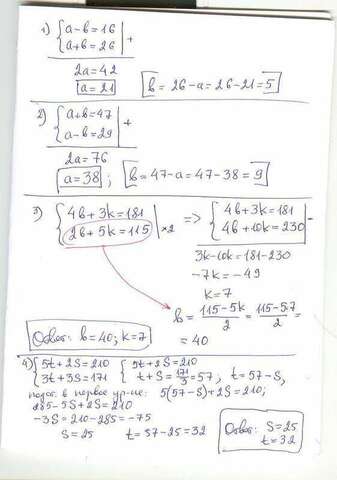 1) { a-b=16 | +
a+b=26
2a=42
a=21   b=26-a=26-21=5
2) { a+b=47 | +
a-b=29
2a=76
a=38 ; b=47-a=47-38=9
3) { 4b+3k=181 | => { 4b+3k=181 | -
2b+5k=115 | ×2   4b+10k=230
3k-10k=181-230
-7k=-49
k=7
b=(115-5k)/2=(115-5·7)/2=
=40
Ответ: b=40; k=7
4) { 5t+2S=210   { 5t+2S=210
3t+3S=171   t+S=171/3=57, t=57-S,
подст. в первое ур-ние: 5(57-S)+2S=210;
285-5S+2S=210
-3S=210-285=-75
S=25   t=57-25=32
Ответ: S=25
t=32